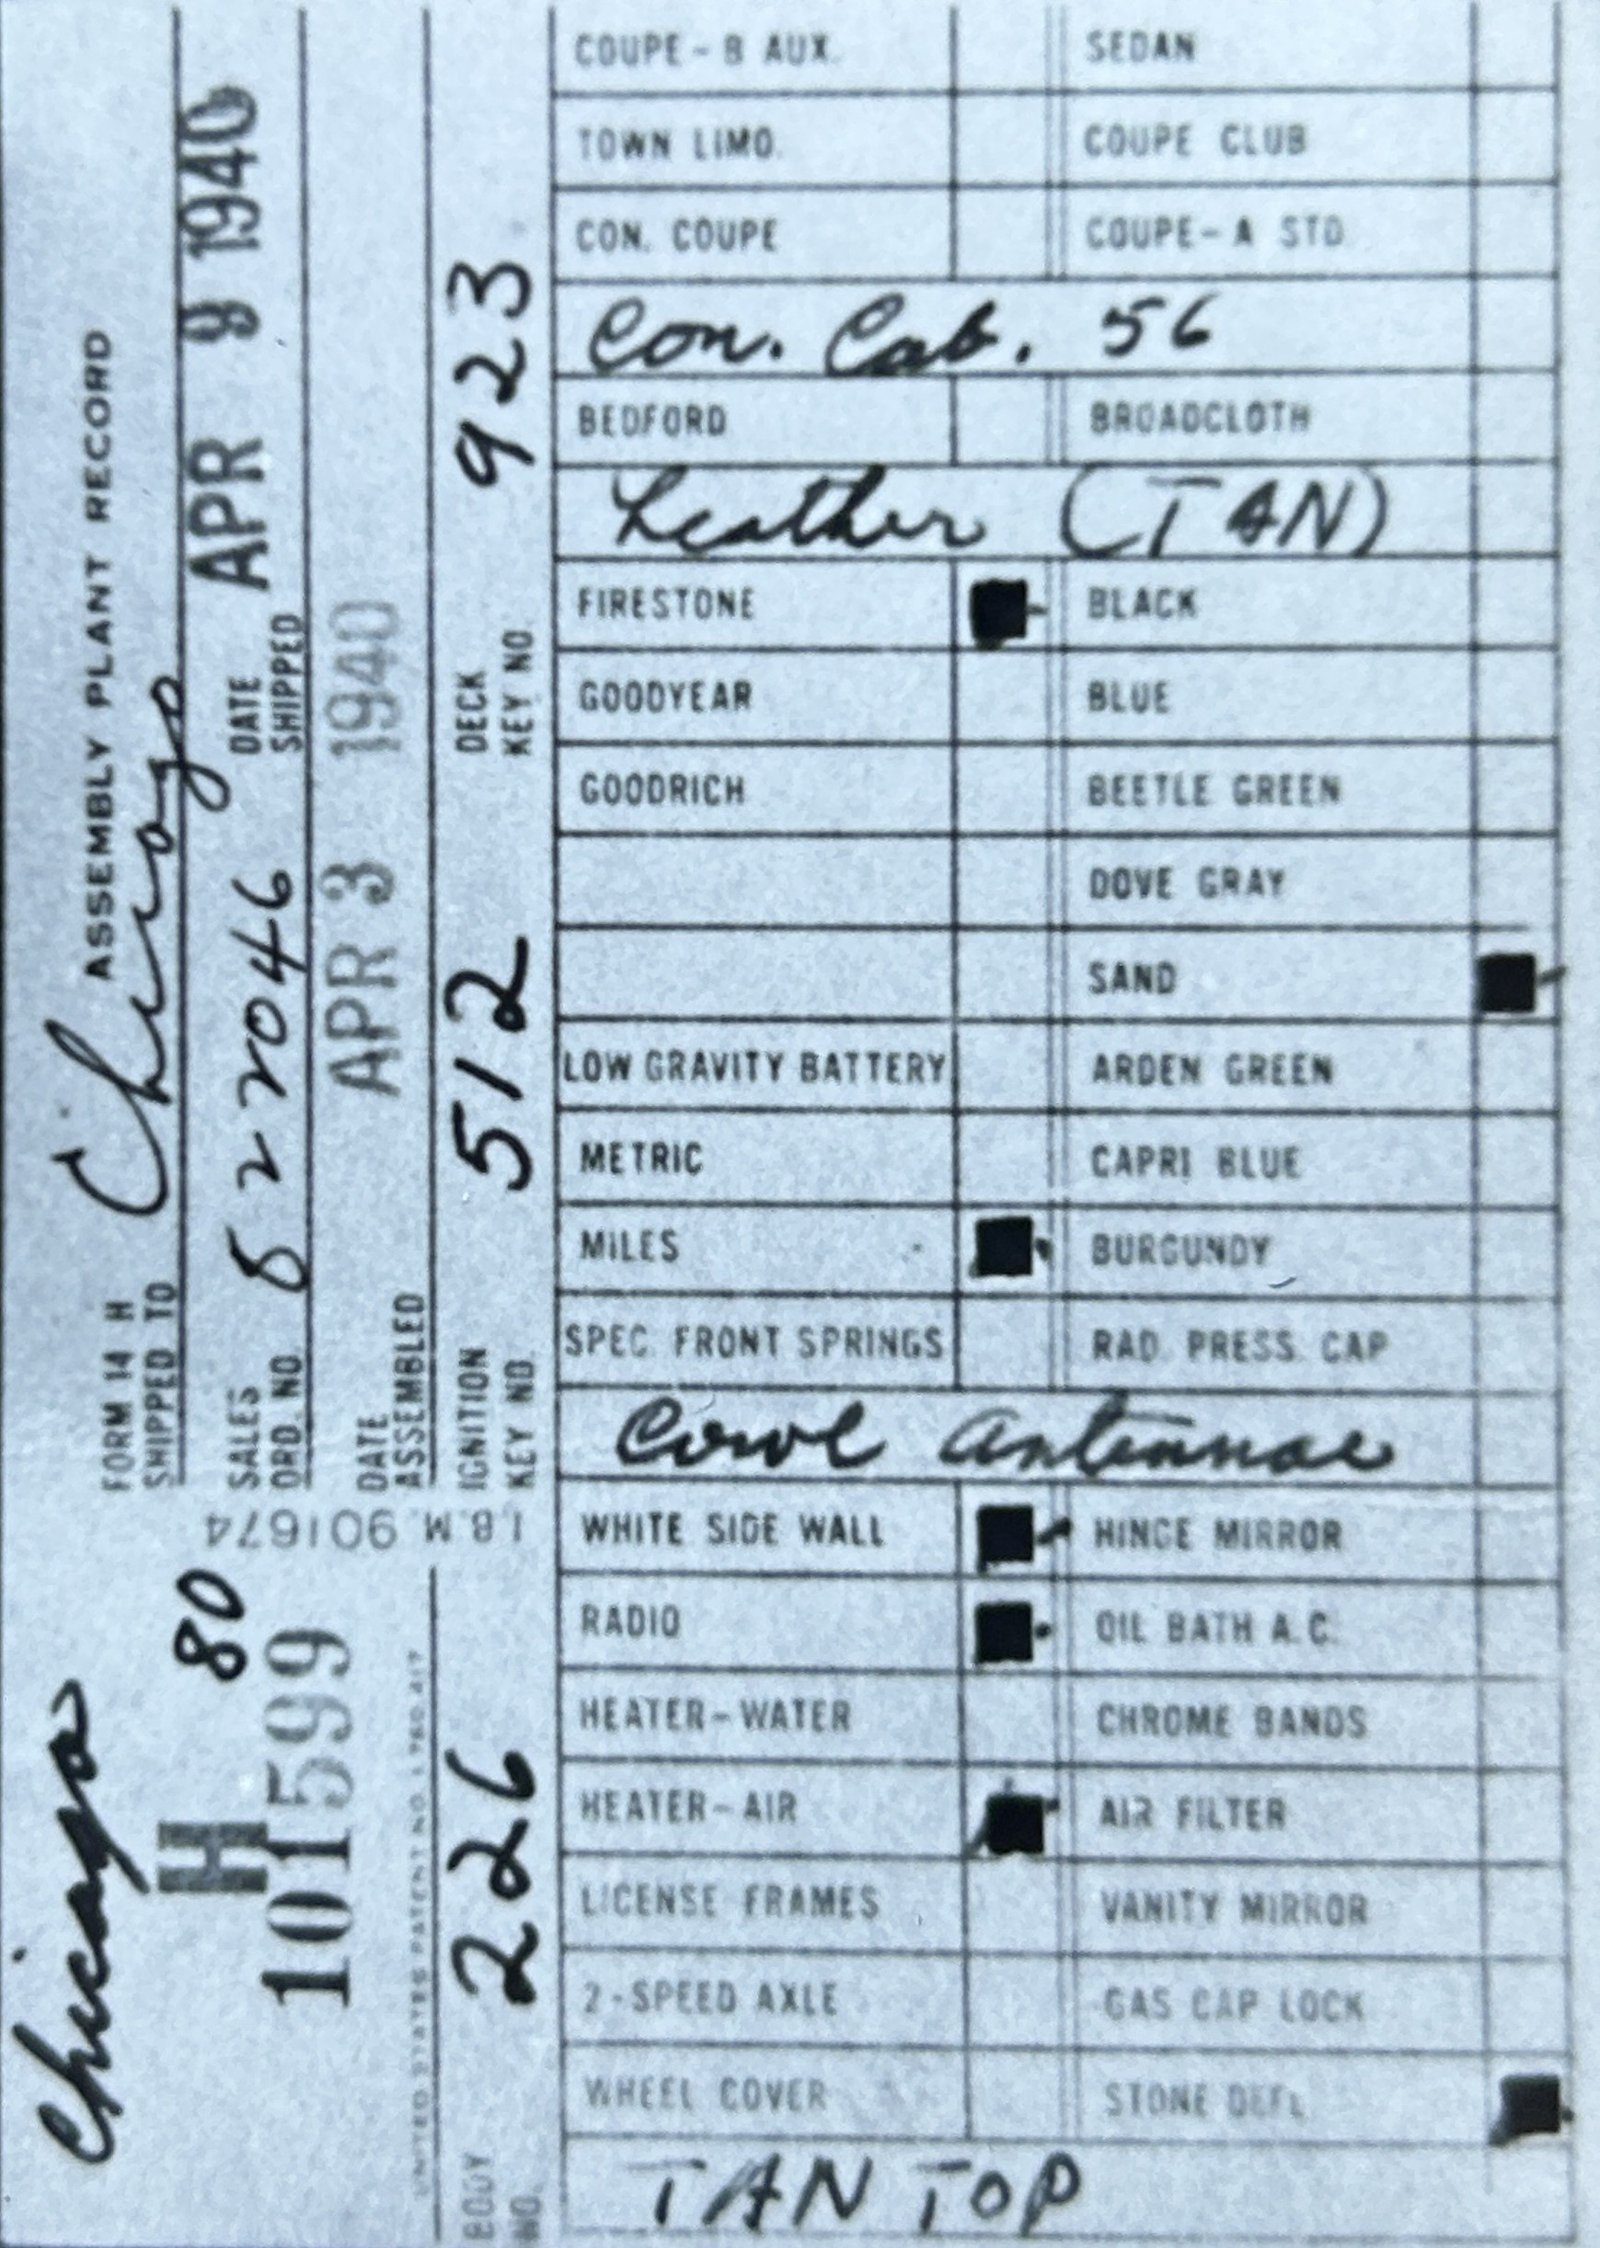 ASSEMBLY PLANT RECORD
FORM 14 H
SHIPPED TO Chicago
SALES ORD. NO. 8 22046
DATE SHIPPED APR 9 1940
DATE ASSEMBLED APR 3 1940
IGNITION KEY NO. 512
DECK KEY NO. 923
Chicago
80
H
101599
I.B.M. 901674
UNITED STATES PATENT NO.
BODY NO. 226
COUPE-B AUX. SEDAN
TOWN LIMO. COUPE CLUB
CON. COUPE COUPE-A STD.
Con. Cab. 56
BEDFORD BROADCLOTH
Leather (TAN)
FIRESTONE BLACK
GOODYEAR BLUE
GOODRICH BEETLE GREEN
DOVE GRAY
SAND
LOW GRAVITY BATTERY ARDEN GREEN
METRIC CAPRI BLUE
MILES BURGUNDY
SPEC. FRONT SPRINGS RAD. PRESS. CAP
Cowl antennae
WHITE SIDE WALL HINGE MIRROR
RADIO OIL BATH A.C.
HEATER-WATER CHROME BANDS
HEATER-AIR AIR FILTER
LICENSE FRAMES VANITY MIRROR
2-SPEED AXLE GAS CAP LOCK
WHEEL COVER STONE DEFL
TAN TOP